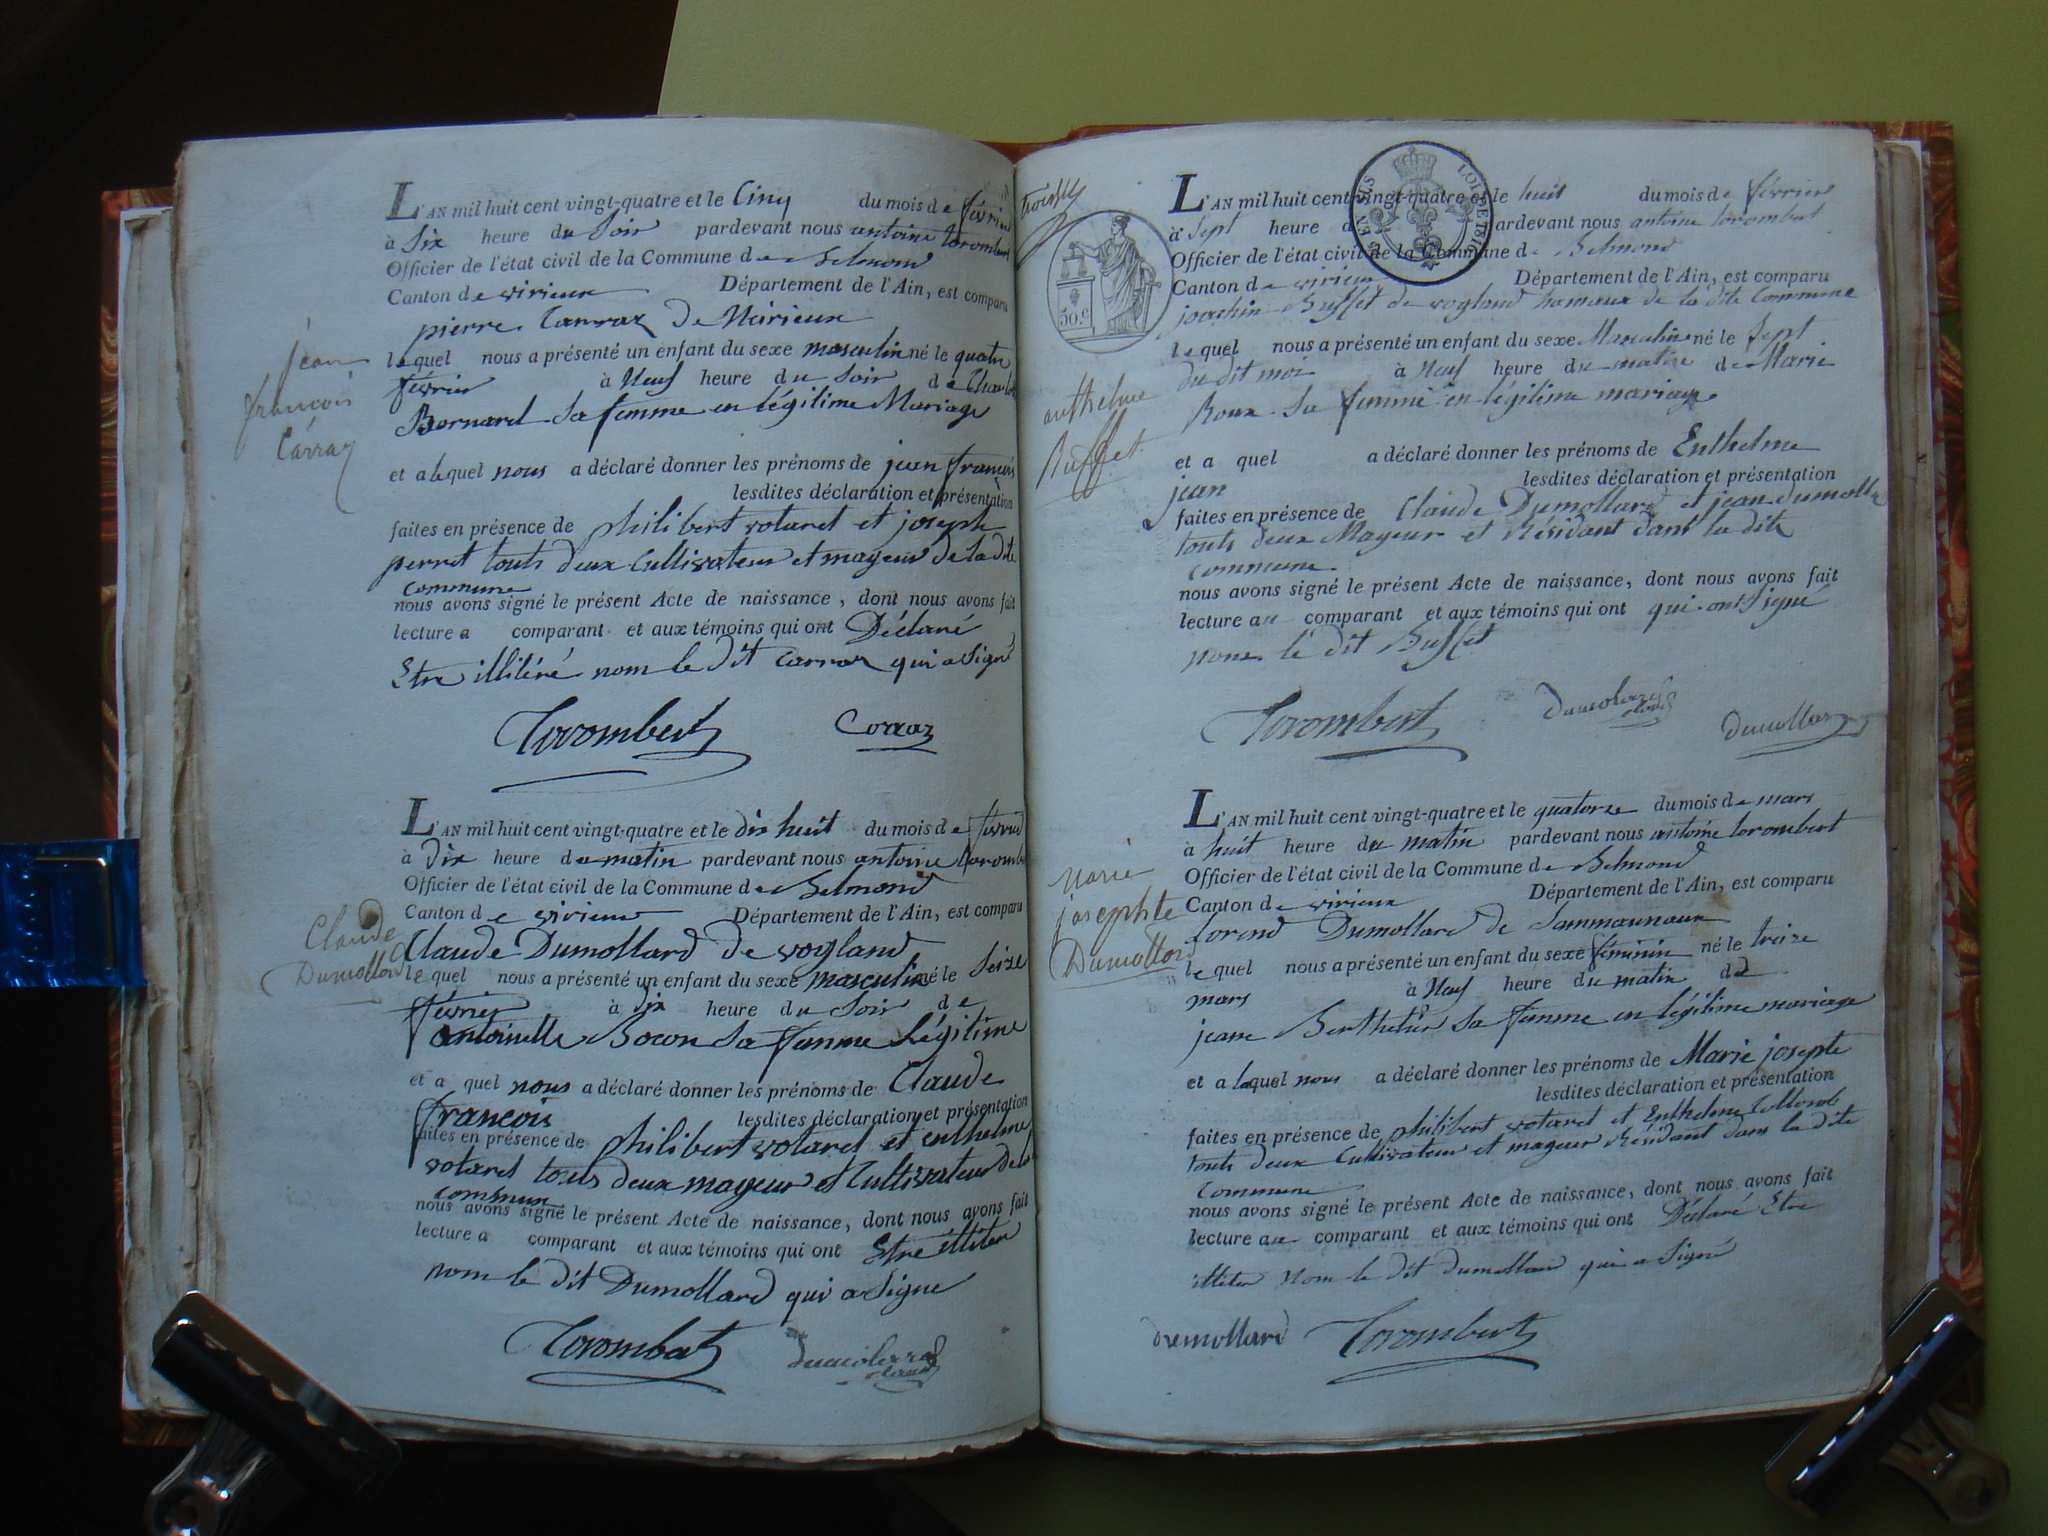 L'AN mil huit cent vingt-quatre et le Cinq du mois de février
à Six heure du Soir pardevant nous antoine torombert
Officier de l'état civil de la Commune de Belmond
Canton de virieux Département de l'Ain, est comparu
pierre Carraz De
jean
le quel nous a présenté un enfant du sexe masculin né le quatre
février à Neuf heure du Soir de
françois
Bornard Sa femme en légitime Mariage
Carraz
et a lequel nous a déclaré donner les prénoms de jean françois
lesdites déclaration et présentation
faites en présence de philibert votaret et joseph
perret touts deux Cultivateur et mayeur de la dite
commune
nous avons signé le présent Acte de naissance, dont nous avons fait
lecture a comparant et aux témoins qui ont Déclaré
Etre illitéré nom le dit Carraz qui a Signé
Torombert Caraz
L'AN mil huit cent vingt-quatre et le dix huit du mois de février
à dix heure du matin pardevant nous antoine torombert
Officier de l'état civil de la Commune de Belmond
Canton de virieux Département de l'Ain, est comparu
Claude
Claude Dumollard de vogland
Dumollard
le quel nous a présenté un enfant du sexe masculin né le Seize
février à dix heure du Soir de
antoinette Bocon Sa femme Légitime
et a quel nous a déclaré donner les prénoms de Claude
françois lesdites déclaration et présentation
faites en présence de philibert votaret et enthelme
votaret touts deux mayeur et Cultivateur de la
commun
nous avons signé le présent Acte de naissance, dont nous avons fait
lecture a comparant et aux témoins qui ont Etre illiter
nom le dit Dumollard qui a Signe
Torombert dumolard
L'AN mil huit cent vingt-quatre et le huit du mois de février
à Sept heure d pardevant nous antoine torombert
Officier de l'état civil de la Commune de Belmond
Canton de virieux Département de l'Ain, est comparu
EN SUS LOI DE 1816
50.c
joachin Buffet de vogland hameaux de la dite Commune
le quel nous a présenté un enfant du sexe Masculin né le Sept
du dit moi à Neuf heure du matin de Marie
anthelme
Roux Sa femme en légitime mariage
Buffet
et a quel a déclaré donner les prénoms de Enthelme
jean lesdites déclaration et présentation
faites en présence de Claude Dumollard et jean dumollard
touts deux Mayeur et Résidant dans la dite
commune
nous avons signé le présent Acte de naissance, dont nous avons fait
lecture au comparant et aux témoins qui ont qui ont Signé
nome le dit Buffet
Torombert dumolard
dumollar
L'AN mil huit cent vingt-quatre et le quatorze du mois de mars
à huit heure du matin pardevant nous antoine torombert
Officier de l'état civil de la Commune de Belmond
Canton de virieux Département de l'Ain, est comparu
Marie
josephte
Dumollard
Lorend Dumollard de
le quel nous a présenté un enfant du sexe féminin né le treize
mars à Neuf heure du matin de
jeane Berthet Sa femme en légitime mariage
et a lequel nous a déclaré donner les prénoms de Marie josephte
lesdites déclaration et présentation
faites en présence de philibert votaret et Enthelme
touts deux Cultivateur et mayeur Résidant dans la dite
commune
nous avons signé le présent Acte de naissance, dont nous avons fait
lecture au comparant et aux témoins qui ont Déclaré Etre
illiter Nom le dit dumollard qui a Signé
dumollard Torombert